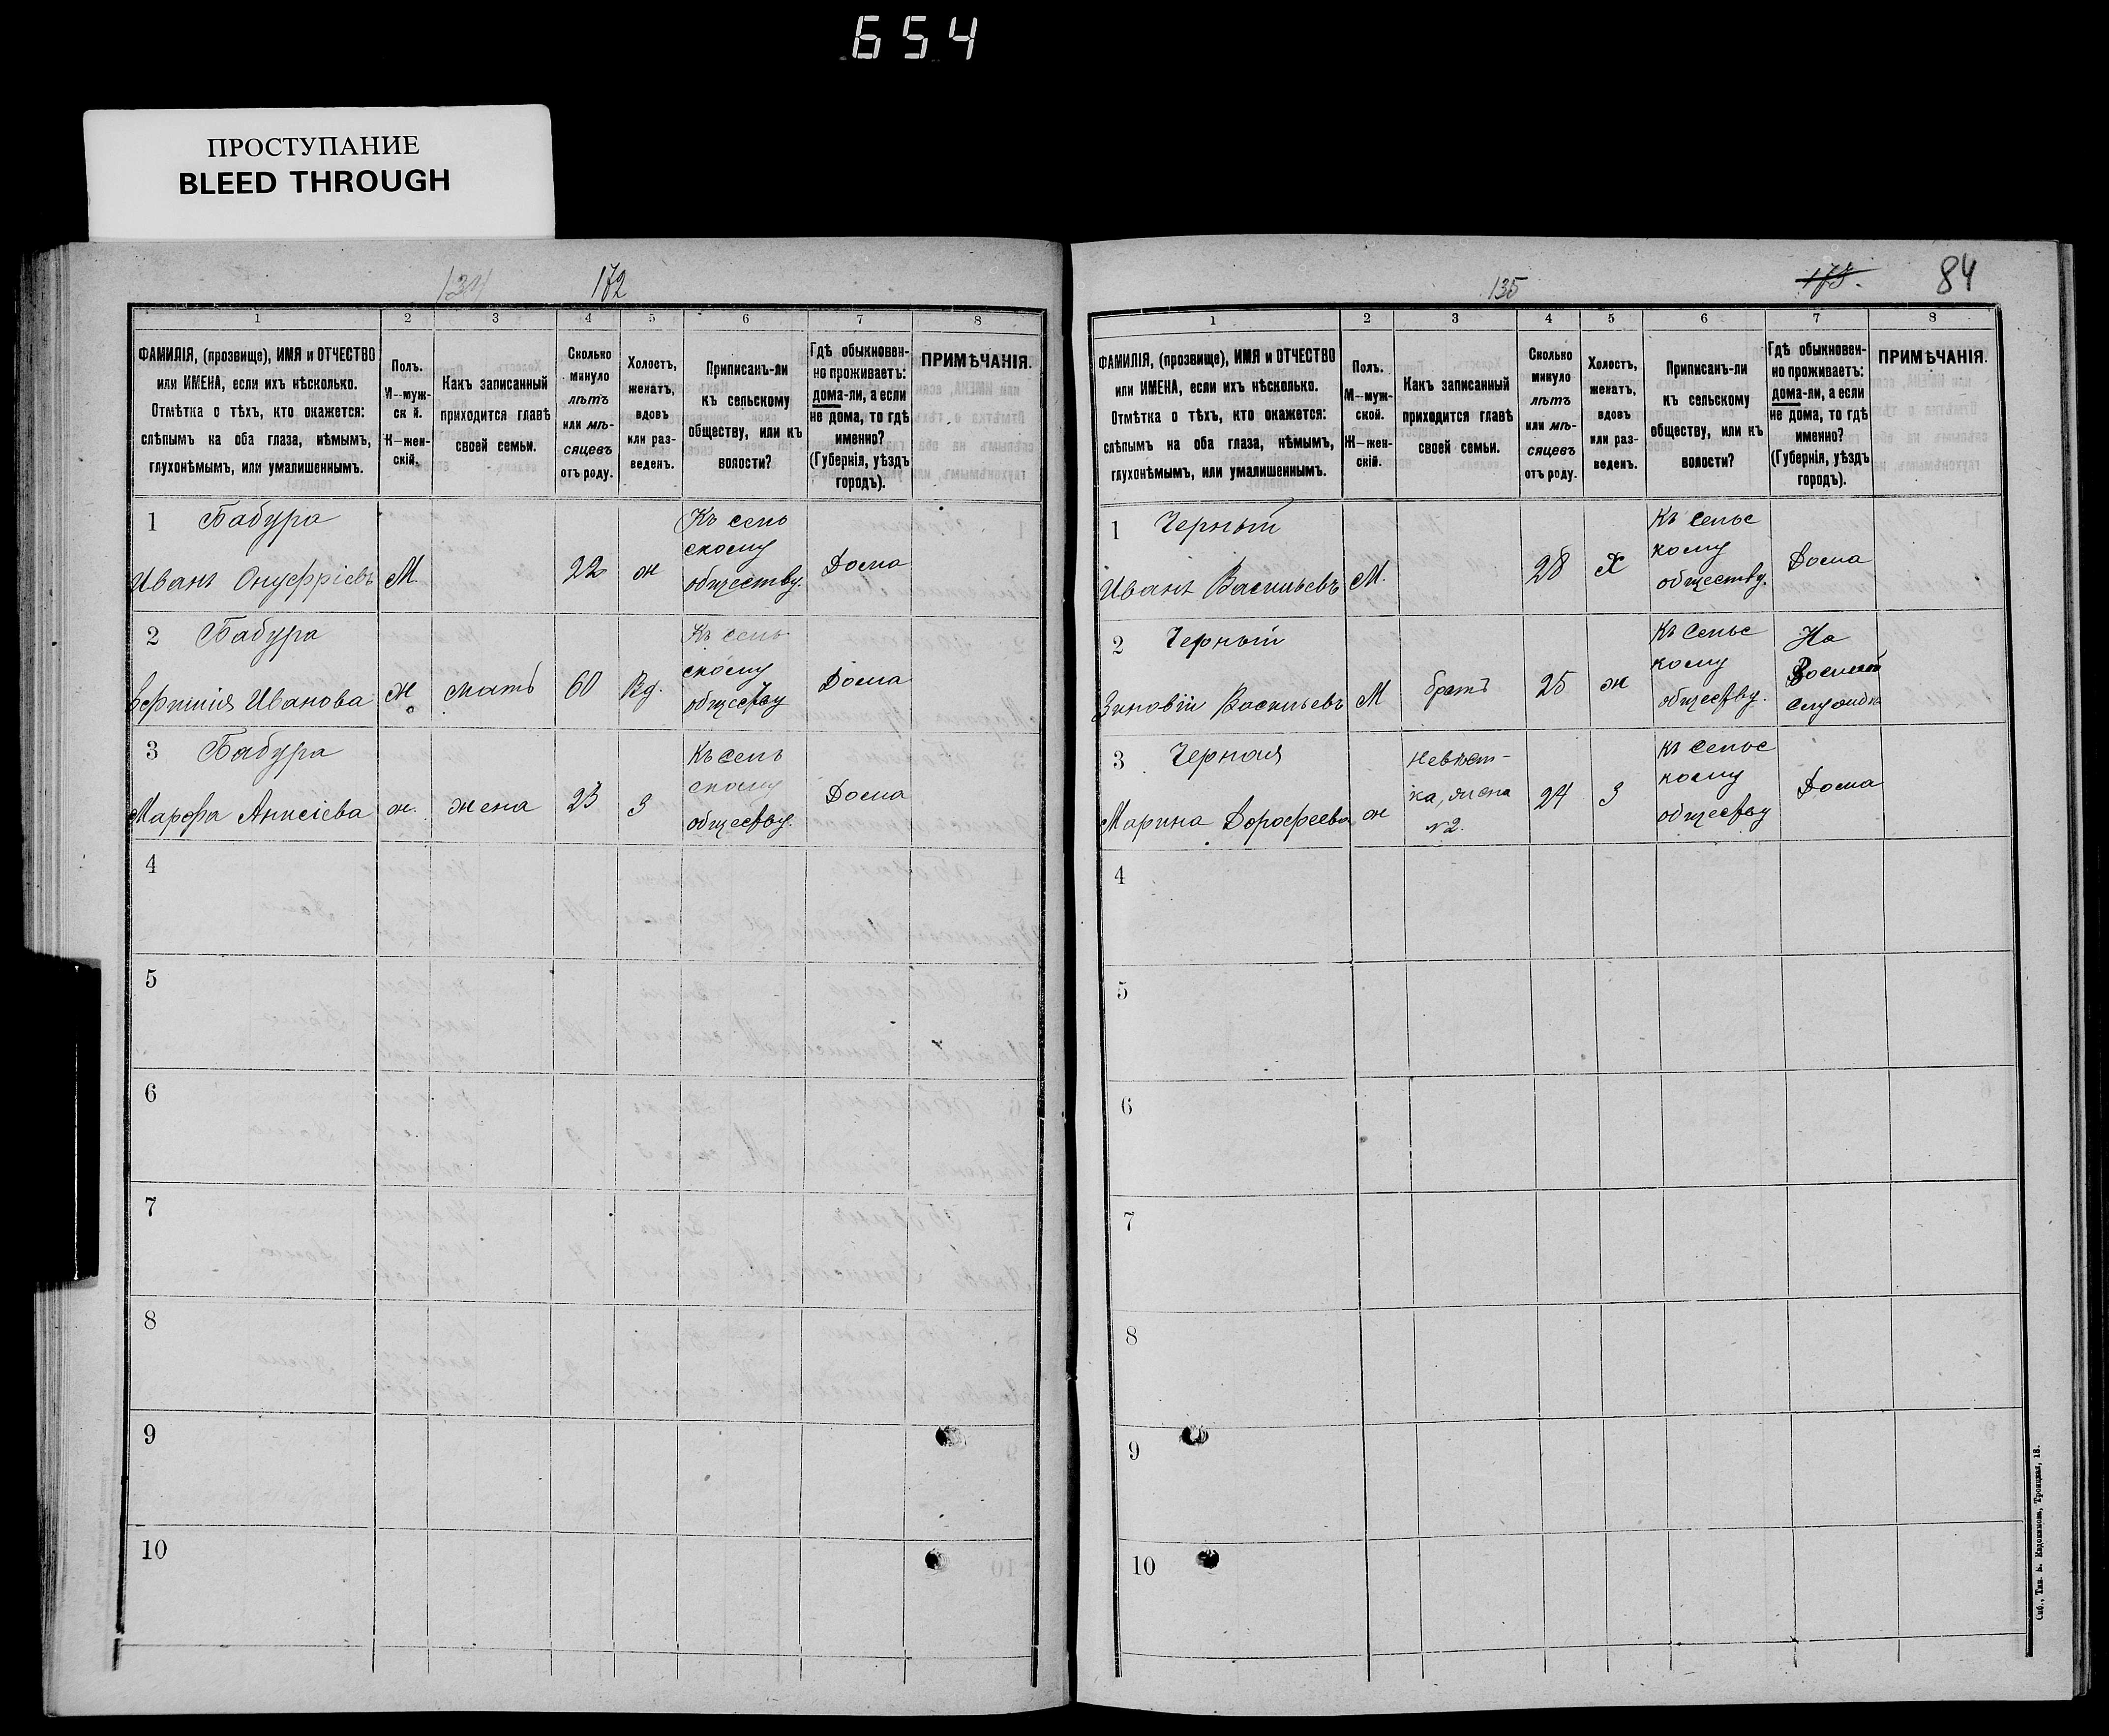 654
ПРОСТУПАНИЕ
BLEED THROUGH
134 172
1 2 3 4 5 6 7 8
ФАМИЛІЯ, (прозвище), ИМЯ и ОТЧЕСТВО
или ИМЕНА, если ихъ нѣсколько.
Отмѣтка о тѣхъ, кто окажется:
слѣпымъ на оба глаза, нѣмымъ,
глухонѣмымъ, или умалишеннымъ.
Полъ.
М—муж-
ск й.
Ж—жен-
скій.
Какъ записанный
приходится главѣ
своей семьи.
Сколько
минуло
лѣтъ
или мѣ-
сяцевъ
отъ роду.
Холостъ,
женатъ,
вдовъ
или раз-
веденъ.
Приписанъ-ли
къ сельскому
обществу, или къ
волости?
Гдѣ обыкновен-
но проживаетъ:
дома-ли, а если
не дома, то гдѣ
именно?
(Губернія, уѣздъ
городъ).
ПРИМѢЧАНІЯ.
1 Бабура
Иванъ Онуфріевъ М. 22 ж Къ сель
скому
обществу. Дома
2 Бабура
Иванова ж мать 60 Вд. Къ сель
скому
обществу Дома
3 Бабура
Марфа Анисіева ж. жена 23 З Къ сель
скому
обществу. Дома
4
5
6
7
8
9
10
135 173. 84
1 2 3 4 5 6 7 8
ФАМИЛІЯ, (прозвище), ИМЯ и ОТЧЕСТВО
или ИМЕНА, если ихъ нѣсколько.
Отмѣтка о тѣхъ, кто окажется:
слѣпымъ на оба глаза, нѣмымъ,
глухонѣмымъ, или умалишеннымъ.
Полъ.
М—муж-
ской.
Ж—жен-
скій.
Какъ записанный
приходится главѣ
своей семьи.
Сколько
минуло
лѣтъ
или мѣ-
сяцевъ
отъ роду.
Холостъ,
женатъ,
вдовъ
или раз-
веденъ.
Приписанъ-ли
къ сельскому
обществу, или къ
волости?
Гдѣ обыкновен-
но проживаетъ:
дома-ли, а если
не дома, то гдѣ
именно?
(Губернія, уѣздъ
городъ).
ПРИМѢЧАНІЯ.
1 Черный
Иванъ Васильевъ М. 28 Х Къ сельс
кому
обществу. Дома
2 Черный
Зиновій Васильевъ М братъ 25 ж Къ сельс
кому
обществу. На
Военной
службѣ
3 Черная
Марина Дорофеева ж Невѣст-
ка, жена
№2. 24 З Къ сельс
кому
обществу Дома
4
5
6
7
8
9
10
Спб., Тип. Евдокимова, Троицкая, 18.